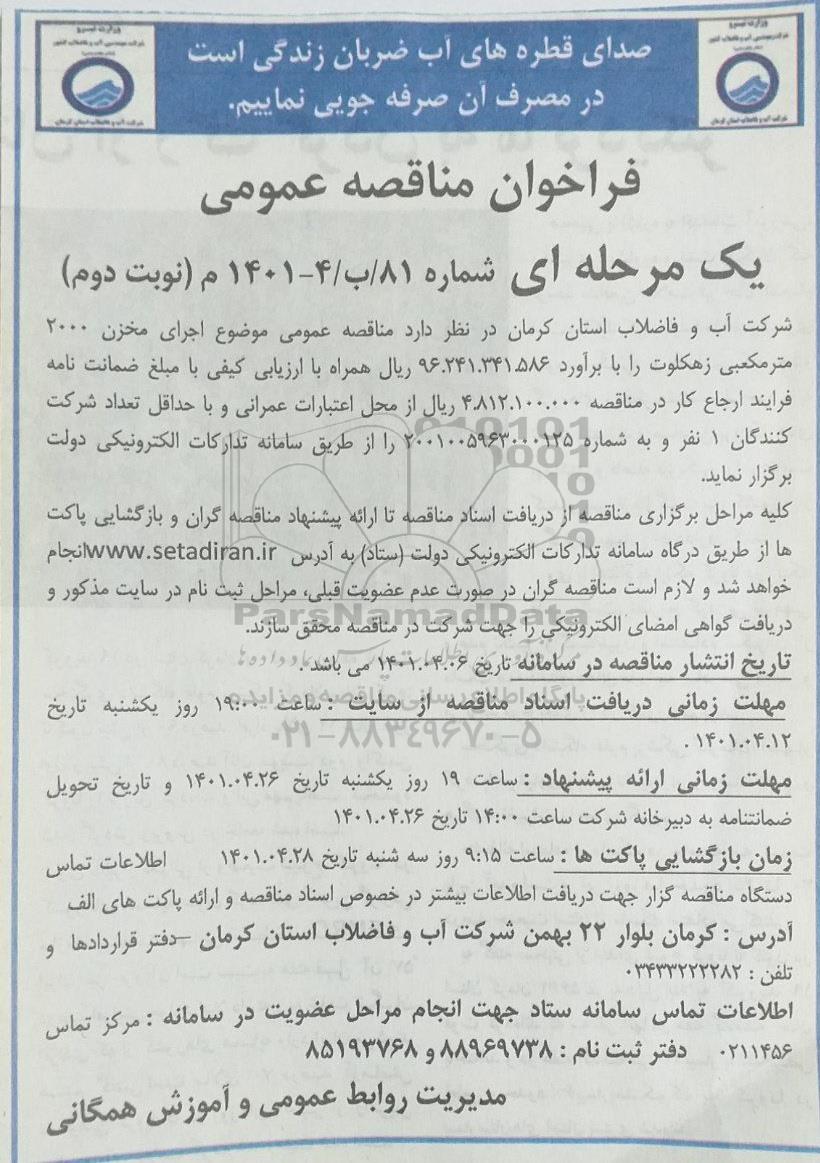 صدای قطره های آب ضربان زندگی است
در مصرف آن صرفه جویی نماییم.
وزارت نیرو
شرکت مهندسی آب و فاضلاب کشور
شرکت آب و فاضلاب استان کرمان
وزارت نیرو
شرکت مهندسی آب و فاضلاب کشور
شرکت آب و فاضلاب استان کرمان
فراخوان مناقصه عمومی
یک مرحله ای شماره ۸۱/ب/۴-۱۴۰۱ م (نوبت دوم)
شرکت آب و فاضلاب استان کرمان در نظر دارد مناقصه عمومی موضوع اجرای مخزن ۲۰۰۰
مترمکعبی زهکلوت را با برآورد ۹۶.۲۴۱.۳۴۱.۵۸۶ ریال همراه با ارزیابی کیفی با مبلغ ضمانت نامه
فرایند ارجاع کار در مناقصه ۴.۸۱۲.۱۰۰.۰۰۰ ریال از محل اعتبارات عمرانی و با حداقل تعداد شرکت
کنندگان ۱ نفر و به شماره ۲۰۰۱۰۰۵۹۶۳۰۰۰۱۲۵ را از طریق سامانه تدارکات الکترونیکی دولت
برگزار نماید.
کلیه مراحل برگزاری مناقصه از دریافت اسناد مناقصه تا ارائه پیشنهاد مناقصه گران و بازگشایی پاکت
ها از طریق درگاه سامانه تدارکات الکترونیکی دولت (ستاد) به آدرس www.setadiran.ir انجام
خواهد شد و لازم است مناقصه گران در صورت عدم عضویت قبلی، مراحل ثبت نام در سایت مذکور و
دریافت گواهی امضای الکترونیکی را جهت شرکت در مناقصه محقق سازند.
ParsNamadData
تاریخ انتشار مناقصه در سامانه تاریخ ۱۴۰۱.۰۴.۰۶ می باشد .
پایگاه اطلاع رسانی مناقصه و مزایده
مهلت زمانی دریافت اسناد مناقصه از سایت : ساعت ۱۹:۰۰ روز یکشنبه تاریخ
۰۲۱-۸۸۳۴۹۶۷۰-۵
۱۴۰۱.۰۴.۱۲ .
مهلت زمانی ارائه پیشنهاد : ساعت ۱۹ روز یکشنبه تاریخ ۱۴۰۱.۰۴.۲۶ و تاریخ تحویل
ضمانتنامه به دبیرخانه شرکت ساعت ۱۴:۰۰ تاریخ ۱۴۰۱.۰۴.۲۶
زمان بازگشایی پاکت ها : ساعت ۹:۱۵ روز سه شنبه تاریخ ۱۴۰۱.۰۴.۲۸ اطلاعات تماس
دستگاه مناقصه گزار جهت دریافت اطلاعات بیشتر در خصوص اسناد مناقصه و ارائه پاکت های الف
آدرس : کرمان بلوار ۲۲ بهمن شرکت آب و فاضلاب استان کرمان –دفتر قراردادها و
تلفن : ۰۳۴۳۳۲۲۲۲۸۲
اطلاعات تماس سامانه ستاد جهت انجام مراحل عضویت در سامانه : مرکز تماس
۰۲۱۱۴۵۶ دفتر ثبت نام : ۸۸۹۶۹۷۳۸ و ۸۵۱۹۳۷۶۸
مدیریت روابط عمومی و آموزش همگانی